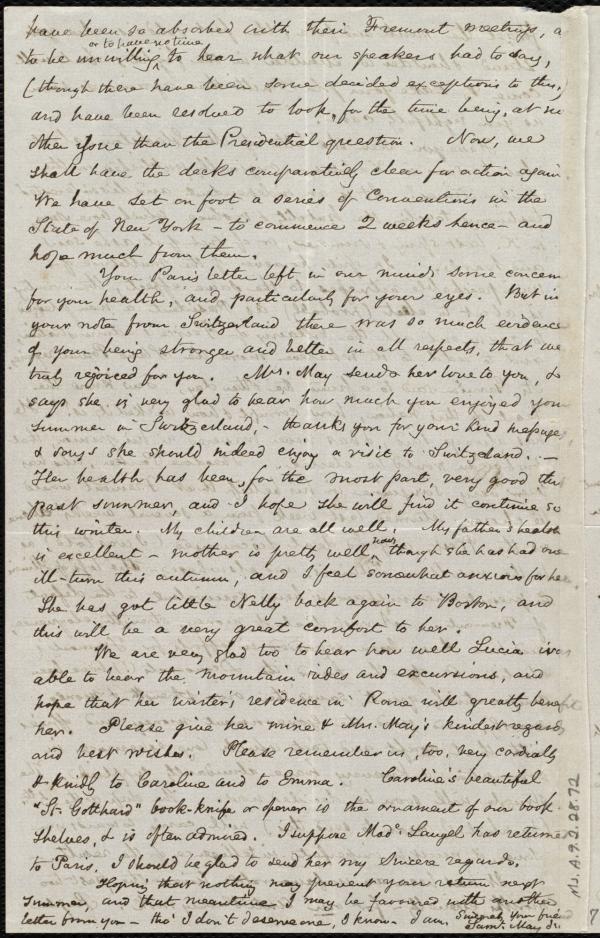 have been so absorbed with their Fremont meetings, a
to be unwilling or to have no time to hear what our speakers had to say,
(though there have been some decided exceptions to this,)
and have been resolved to look, for the time being, at no
other issue than the Presidential question. Now, we
shall have the decks comparatively clear for action again.
We have set on foot a series of Conventions in the
State of New York - to commence 2 weeks hence - and
hope much from them.
Your Paris letter left in our minds some concern
for your health, and particularly for your eyes. But in
your note from Switzerland there was so much evidence
of your being stronger and better in all respects, that we
truly rejoiced for you. Mrs. May sends her love to you, &
says she is very glad to hear how much you enjoyed your
summer in Switzerland, - thanks you for your kind message,
& says she should indeed enjoy a visit to Switzerland. -
Her health has been, for the most part, very good the
past summer, and I hope she will find it continue so
this winter. My children are all well. My father's health
is excellent - mother is pretty well now, though she has had one
ill-turn this autumn, and I feel somewhat anxious for her.
She has got little Nelly back again to Boston, and
this will be a very great comfort to her.
We are very glad too to hear how well Lucia was
able to bear the mountain rides and excursions, and
hope that her winter's residence in Rome will greatly benefit
her. Please give her mine & Mrs. May's kindest regards
and best wishes. Please remember us, too, very cordially
& kindly to Caroline and to Emma. Caroline's beautiful
"St. Gotthard" book-knife or opener is the ornament of our book
shelves, & is often admired. I suppose Made. Laugel has returned
to Paris. I should be glad to send her my sincere regards.
Hoping that nothing may prevent your return next
summer, and that meantime I may be favoured with another
letter from you - tho' I don't deserve one, I know. I am, Sincerely Your friend
Saml. May Jr.
Ms. A. 9. 2. 28. 72